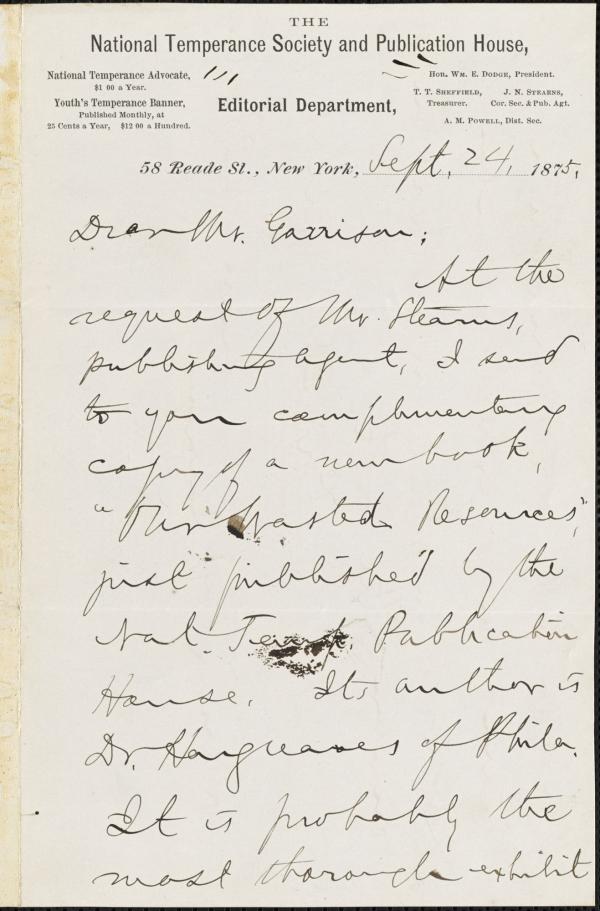 THE
National Temperance Society and Publication House,
National Temperance Advocate,
$1 00 a Year.
Youth's Temperance Banner,
Published Monthly, at
25 Cents a Year, $12 00 a Hundred.
Editorial Department,
Hon. Wm. E. Dodge, President.
T. T. Sheffield, J. N. Stearns,
Treasurer. Cor. Sec. & Pub. Agt.
A. M. Powell, Dist. Sec.
58 Reade St., New York, Sept. 24, 1875.
Dear Mr. Garrison;
At the
request of Mr. Stearns,
publishing agent, I send
to you complimentary
copy of a new book,
"Our Wasted Resources",
just published by the
Nat. Temp. Publication
House. Its author is
Dr. Hargreaves of Phila.
It is probably the
most thorough exhibit